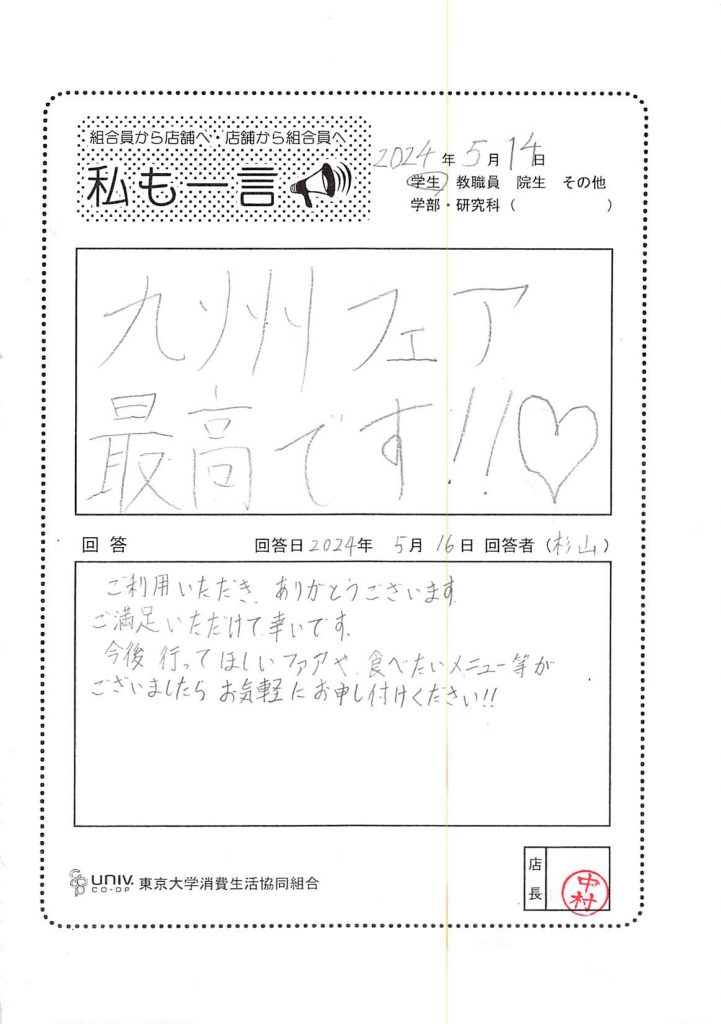 組合員から店舗へ・店舗から組合員へ
私も一言
2024年5月14日
学生 教職員 院生 その他
学部・研究科( )
九州フェア
最高です!!♡
回答 回答日2024年 5月 16日 回答者(杉山)
ご利用いただき、ありがとうございます。
ご満足いただけて幸いです。
今後 行ってほしいフェアや、食べたいメニュー等が
ございましたら お気軽に お申し付けください!!
UNIV. CO-OP 東京大学消費生活協同組合
店長
中村